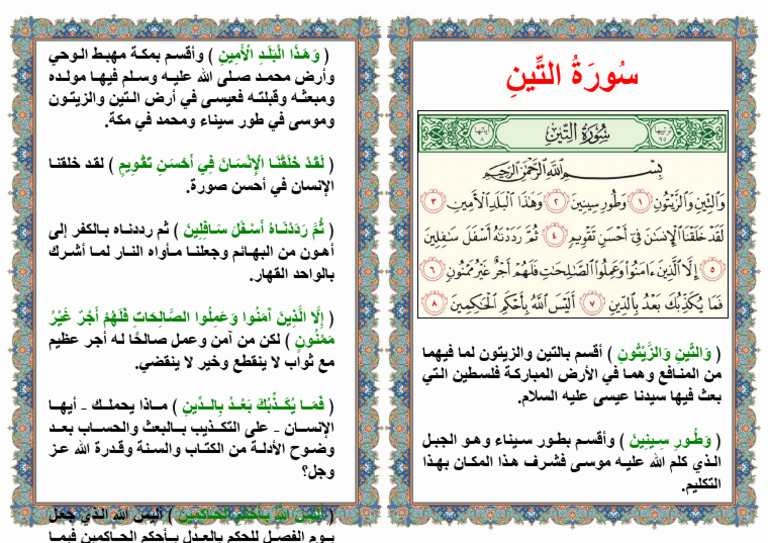 سُورَةُ التِّينِ
ترتيبها ٩٥ سُورَةُ التِّينِ آياتها ٨
بِسْمِ اللَّهِ الرَّحْمَٰنِ الرَّحِيمِ
وَٱلتِّينِ وَٱلزَّيْتُونِ ١ وَطُورِ سِينِينَ ٢ وَهَٰذَا ٱلْبَلَدِ ٱلْأَمِينِ ٣
لَقَدْ خَلَقْنَا ٱلْإِنسَٰنَ فِىٓ أَحْسَنِ تَقْوِيمٍ ٤ ثُمَّ رَدَدْنَٰهُ أَسْفَلَ سَٰفِلِينَ
٥ إِلَّا ٱلَّذِينَ ءَامَنُوا۟ وَعَمِلُوا۟ ٱلصَّٰلِحَٰتِ فَلَهُمْ أَجْرٌ غَيْرُ مَمْنُونٍ ٦
فَمَا يُكَذِّبُكَ بَعْدُ بِٱلدِّينِ ٧ أَلَيْسَ ٱللَّهُ بِأَحْكَمِ ٱلْحَٰكِمِينَ ٨
( وَالتِّينِ وَالزَّيْتُونِ ) أقسم بالتين والزيتون لما فيهما
من المنافع وهما في الأرض المباركة فلسطين التي
بعث فيها سيدنا عيسى عليه السلام.
( وَطُورِ سِينِينَ ) وأقسم بطور سيناء وهو الجبل
الذي كلم الله عليه موسى فشرف هذا المكان بهذا
التكليم.
( وَهَذَا الْبَلَدِ الْأَمِينِ ) وأقسم بمكة مهبط الوحي
وأرض محمد صلى الله عليه وسلم فيها مولده
ومبعثه وقبلته فعيسى في أرض التين والزيتون
وموسى في طور سيناء ومحمد في مكة.
( لَقَدْ خَلَقْنَا الْإِنْسَانَ فِي أَحْسَنِ تَقْوِيمٍ ) لقد خلقنا
الإنسان في أحسن صورة.
( ثُمَّ رَدَدْنَاهُ أَسْفَلَ سَافِلِينَ ) ثم رددناه بالكفر إلى
أهون من البهائم وجعلنا مأواه النار لما أشرك
بالواحد القهار.
( إِلَّا الَّذِينَ آمَنُوا وَعَمِلُوا الصَّالِحَاتِ فَلَهُمْ أَجْرٌ غَيْرُ
مَمْنُونٍ ) لكن من آمن وعمل صالحًا له أجر عظيم
مع ثواب لا ينقطع وخير لا ينقضي.
( فَمَا يُكَذِّبُكَ بَعْدُ بِالدِّينِ ) ماذا يحملك - أيها
الإنسان - على التكذيب بالبعث والحساب بعد
وضوح الأدلة من الكتاب والسنة وقدرة الله عز
وجل؟
( أَلَيْسَ اللَّهُ بِأَحْكَمِ الْحَاكِمِينَ ) أليس الله الذي جعل
يوم الفصل للحكم بالعدل بأحكم الحاكمين فيما